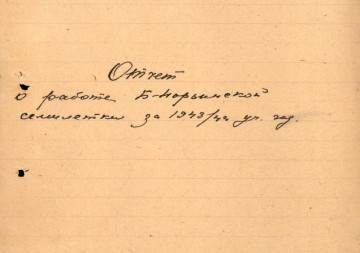 Отчет
о работе Б-Норьинской
семилетки за 1943/44 уч. год.